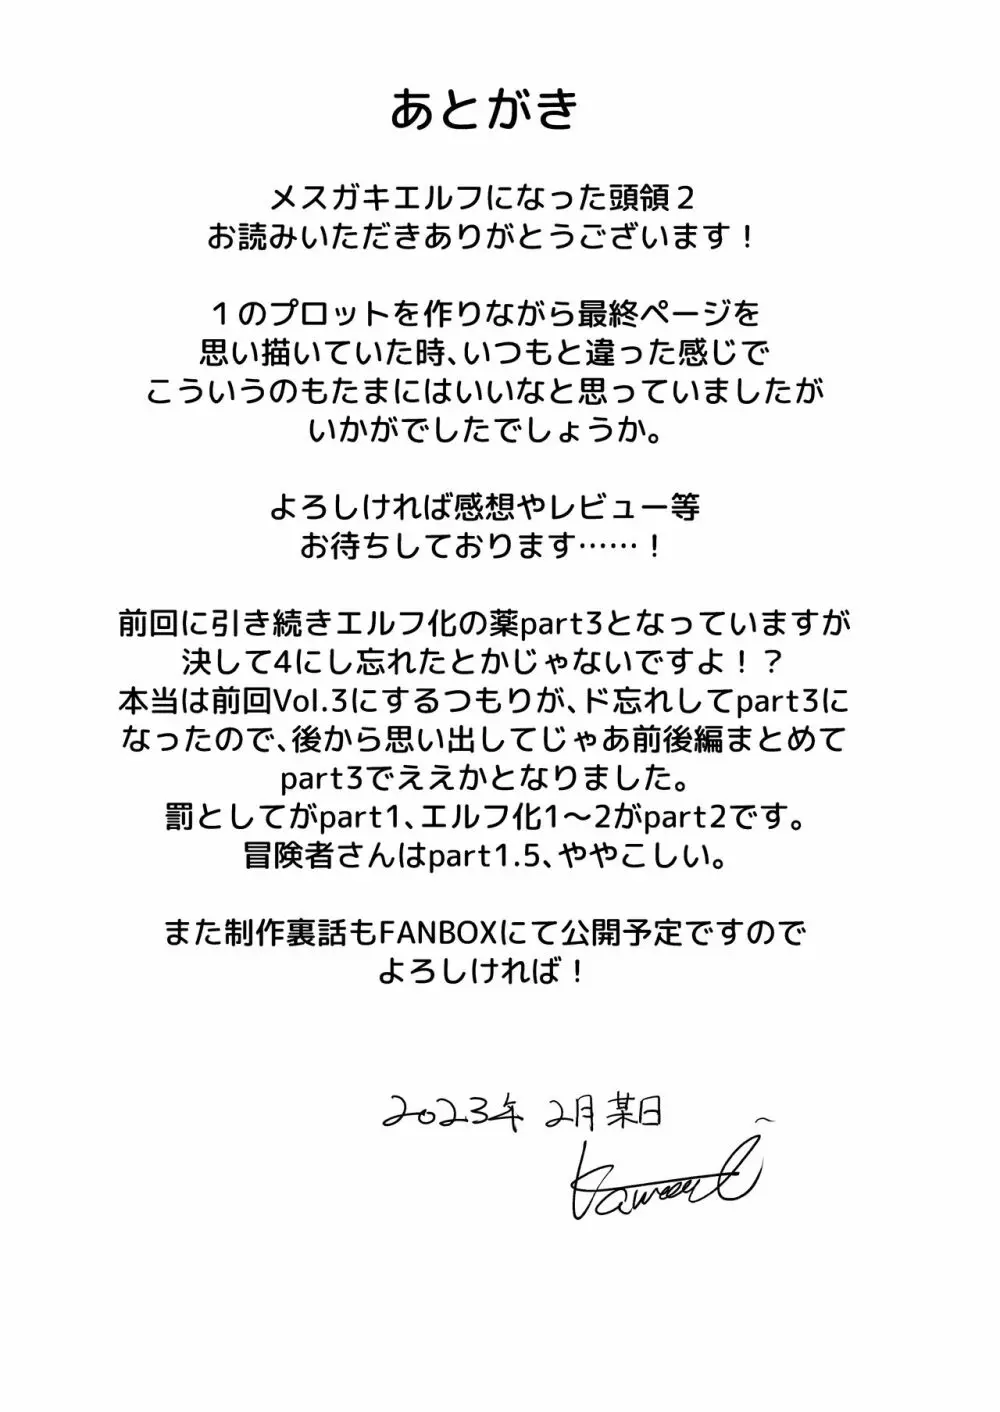 あとがき
メスガキエルフになった頭領２
お読みいただきありがとうございます！
１のプロットを作りながら最終ページを
思い描いていた時､いつもと違った感じで
こういうのもたまにはいいなと思っていましたが
いかがでしたでしょうか。
よろしければ感想やレビュー等
お待ちしております……！
前回に引き続きエルフ化の薬part3となっていますが
決して4にし忘れたとかじゃないですよ！？
本当は前回Vol.3にするつもりが､ド忘れしてpart3に
なったので､後から思い出してじゃあ前後編まとめて
part3でええかとなりました。
罰としてがpart1､エルフ化1～2がpart2です。
冒険者さんはpart1.5､ややこしい。
また制作裏話もFANBOXにて公開予定ですので
よろしければ！
2023年 2月某日